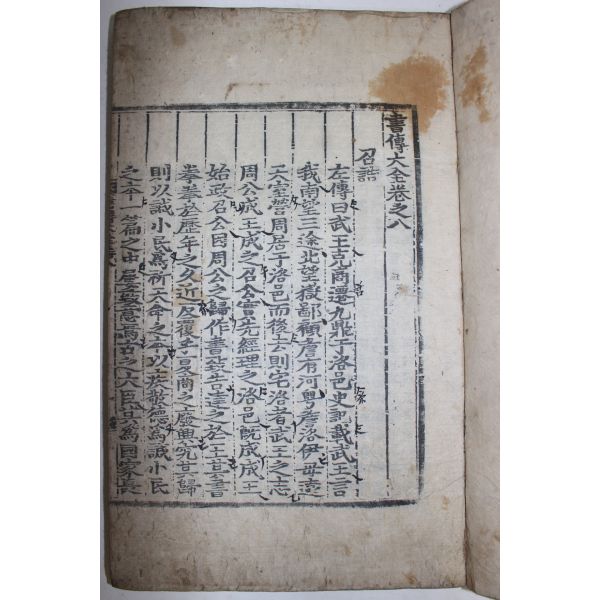 書傳大全卷之八
召誥
左傳曰武王克商遷九鼎于洛邑史記載武王言
我南望三途北望嶽鄙顧詹有河粤詹洛伊毋遠
天室營周居于洛邑而後去則宅洛者武王之志
周公成王成之召公實先經理之洛邑旣成成王
始政召公因周公之歸作書致告達之於王其書
拳拳於歷年之久近反復乎夏商之廢興究其歸
則以諴小民爲祈天命之本以疾敬德爲諴小民
之本 篇之中屢致意焉古之大臣其爲國家長